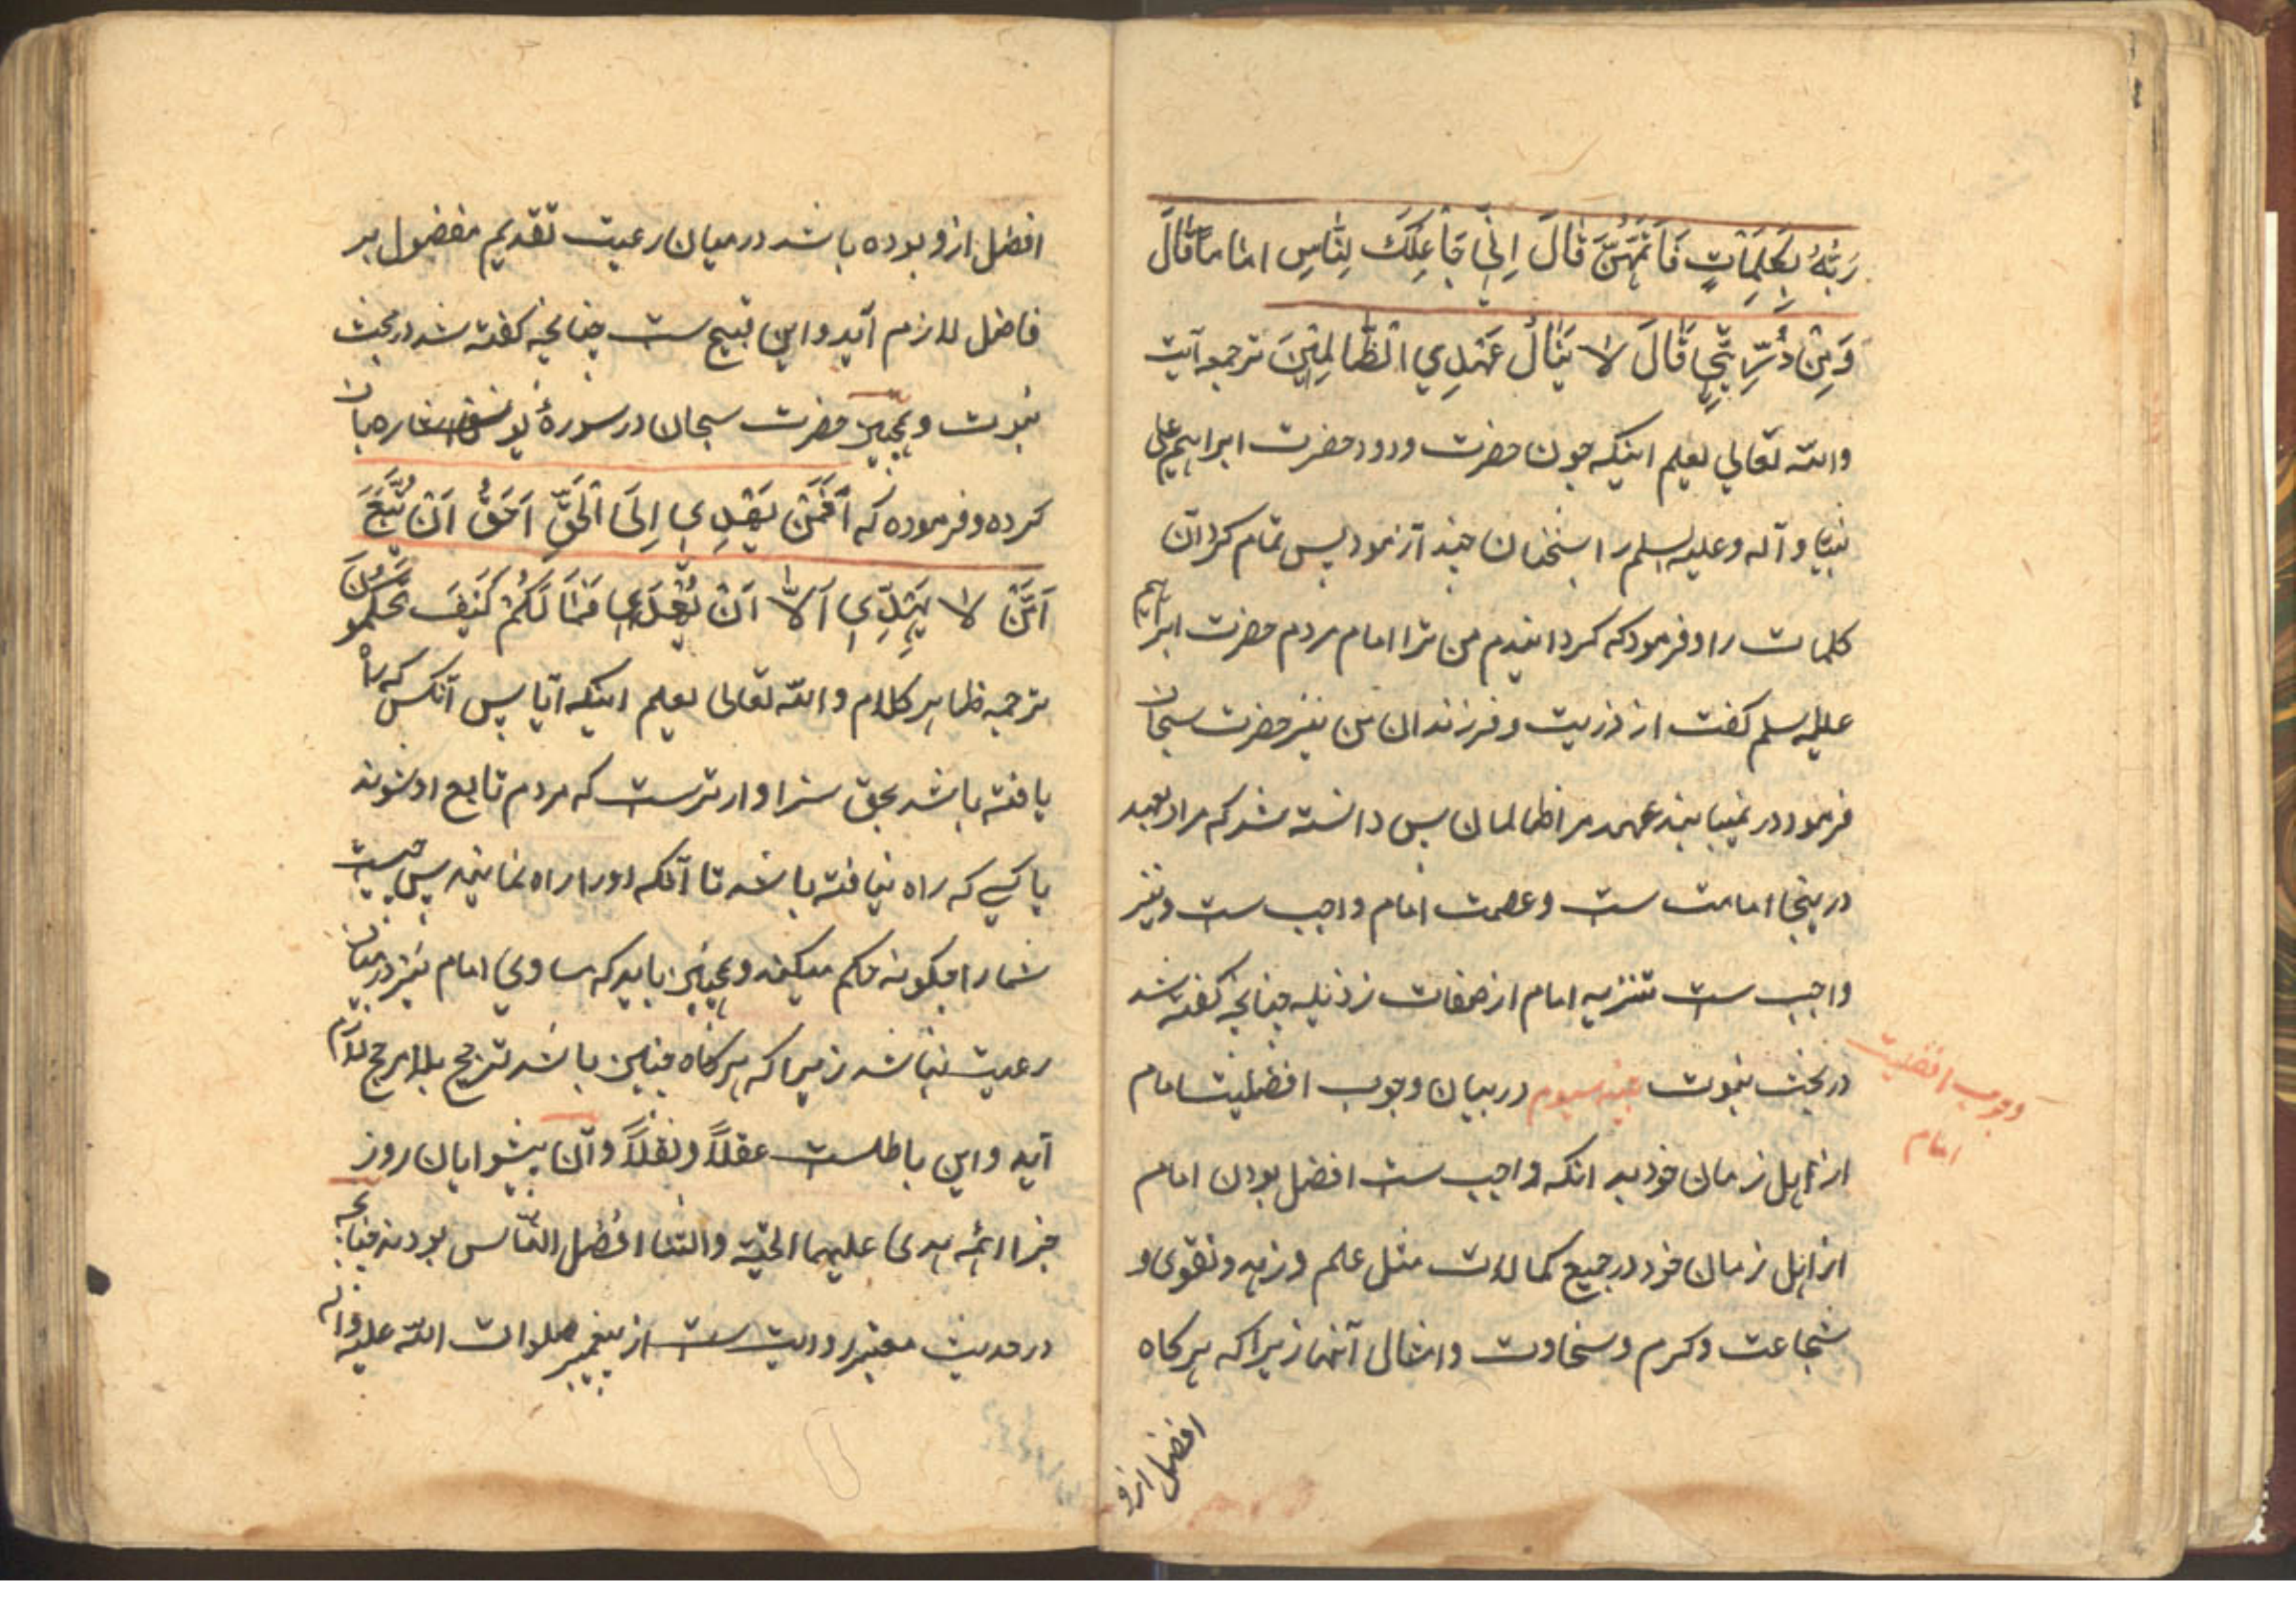 رَبُّهُ بِكَلِمَاتٍ فَاَتَمَّهُنَّ قَالَ اِنِّي جَاعِلُكَ لِلنَّاسِ اماماً قَالَ
وَمِنْ ذُرِّيَّتِي قَالَ لا يَنَالُ عَهْدِي الظَّالِمِيْنَ ترجمه آيت
والله تعالي يعلم اينكه چون حضرت ودود حضرت ابراهيم علي
نبينا و آله وعليه السلم را بسخنان چند آزمود پس تمام كرد آن
كلمات را وفرمود كه كردانيدم من ترا امام مردم حضرت ابراهيم
عليه السلم كفت از ذريت و فرزندان من نيز حضرت سبحان
فرمود در نميابيد عهد مر ظالمان پس دانسته شد كه مراد بعهد
درينجا امامت ست و عصمت امام واجب ست ونيز
واجب ست تنزيه امام از صفات رذيله چنانچه كفته شد
در بحث نبوت سيوم در بيان وجوب افضليت امام
وجوب افضليت
امام
از اهل زمان خود بدانكه واجب ست افضل بودن امام
از اهل زمان خود در جميع كمالات مثل علم و زهد و تقوى و
شجاعت و كرم و سخاوت وامثال آنها زيرا كه هركاه
افضل ازو
افضل ازو بوده باشد در ميان رعيت تقديم مفضول بر
فاضل لازم آيد و اين قبيح ست چنانچه كفته شد در بحث
نبوت و حضرت سبحان در سورهٔ يونس اشاره بان
كرده و فرموده كه اَفَمَنْ يَهْدِي اِلَى الْحَقِّ اَحَقُّ اَنْ يُتَّبَعَ
اَمَّنْ لا يَهِدِّي اَلاَّ اَنْ يُهْدَى فَمَا لَكُمْ كَيْفَ تَحْكُمُونَ
ترجمه ظاهر كلام والله تعالى يعلم اينكه آيا پس آنكس كه راه
يافته باشد بحق سزاوار ترست كه مردم تابع او شوند
يا كسي كه راه نيافته باشد تا آنكه او را راه نمايند پس چيست
شما را چكونه حكم ميكنيد و بايد كه مساوي امام نيز در ميان
رعيت نباشد زيرا كه هركاه چنين باشد ترجيح بلا مرجح لازم
آيد و اين باطلست عقلاً ونقلاً و آن پيشوايان روز
جزا ائمه هدى عليهم التحية والثنا افضل النّاس بودند چنانچه
در حديث معتبر روايت ست از پيغمبر صلوات الله عليه واله